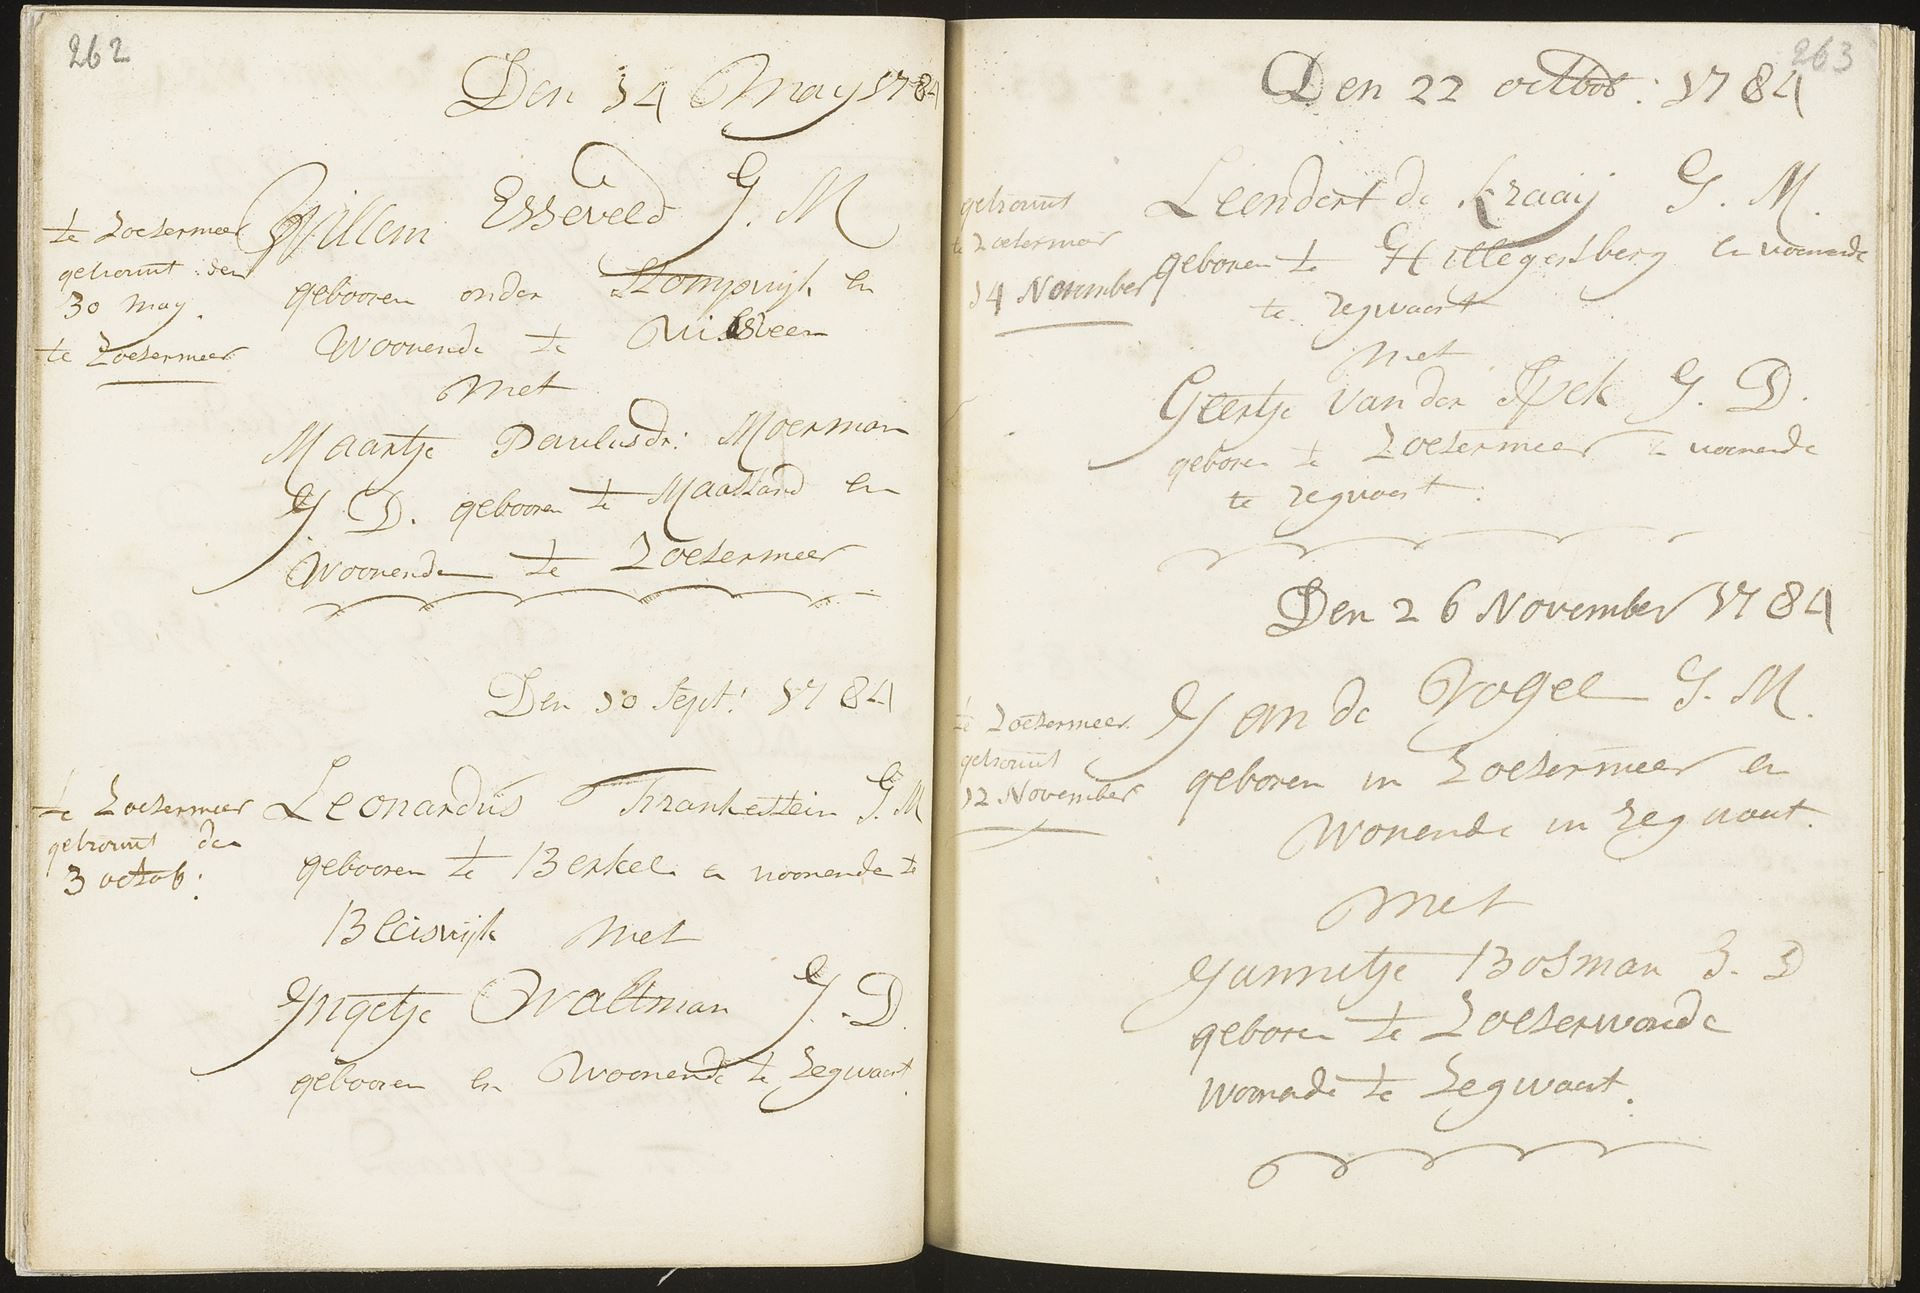 262
Den 14 May 1784
Willem Esseveld J. M
gebooren onder Stompwijk en
Woonende te
Met
Maartje Paulusdr: Moerman
J D. gebooren te Maasland en
Woonende te Zoetermeer
te Zoetermeer
getrouwt den
30 may.
te Zoetermeer
Den 10 Sept: 1784
Leonardus Frankestein J. M
gebooren te Berkel en woonende te
Bleiswijk Met
Ingetje Waltman J. D.
gebooren en Woonende te Zegwaart
te Zoetermeer
getrouwt den
3 octob:
263
Den 22 octob: 1784
Leendert de Kraaij J. M.
geboren te Hillegersberg en woonende
te Zegwaart
Met
Geertje van der Spek J. D.
geboren te Zoetermeer en woonende
te Zegwaart.
getrouwt
te Zoetermeer
14 November
Den 26 November 1784
Jan de Vogel J. M.
geboren in Zoetermeer en
Wonende in Zegwaart.
Met
Jannitje Bosman J. D
geboren te Zoeterwoude
woonende te Zegwaart.
te Zoetermeer
getrouwt
12 November